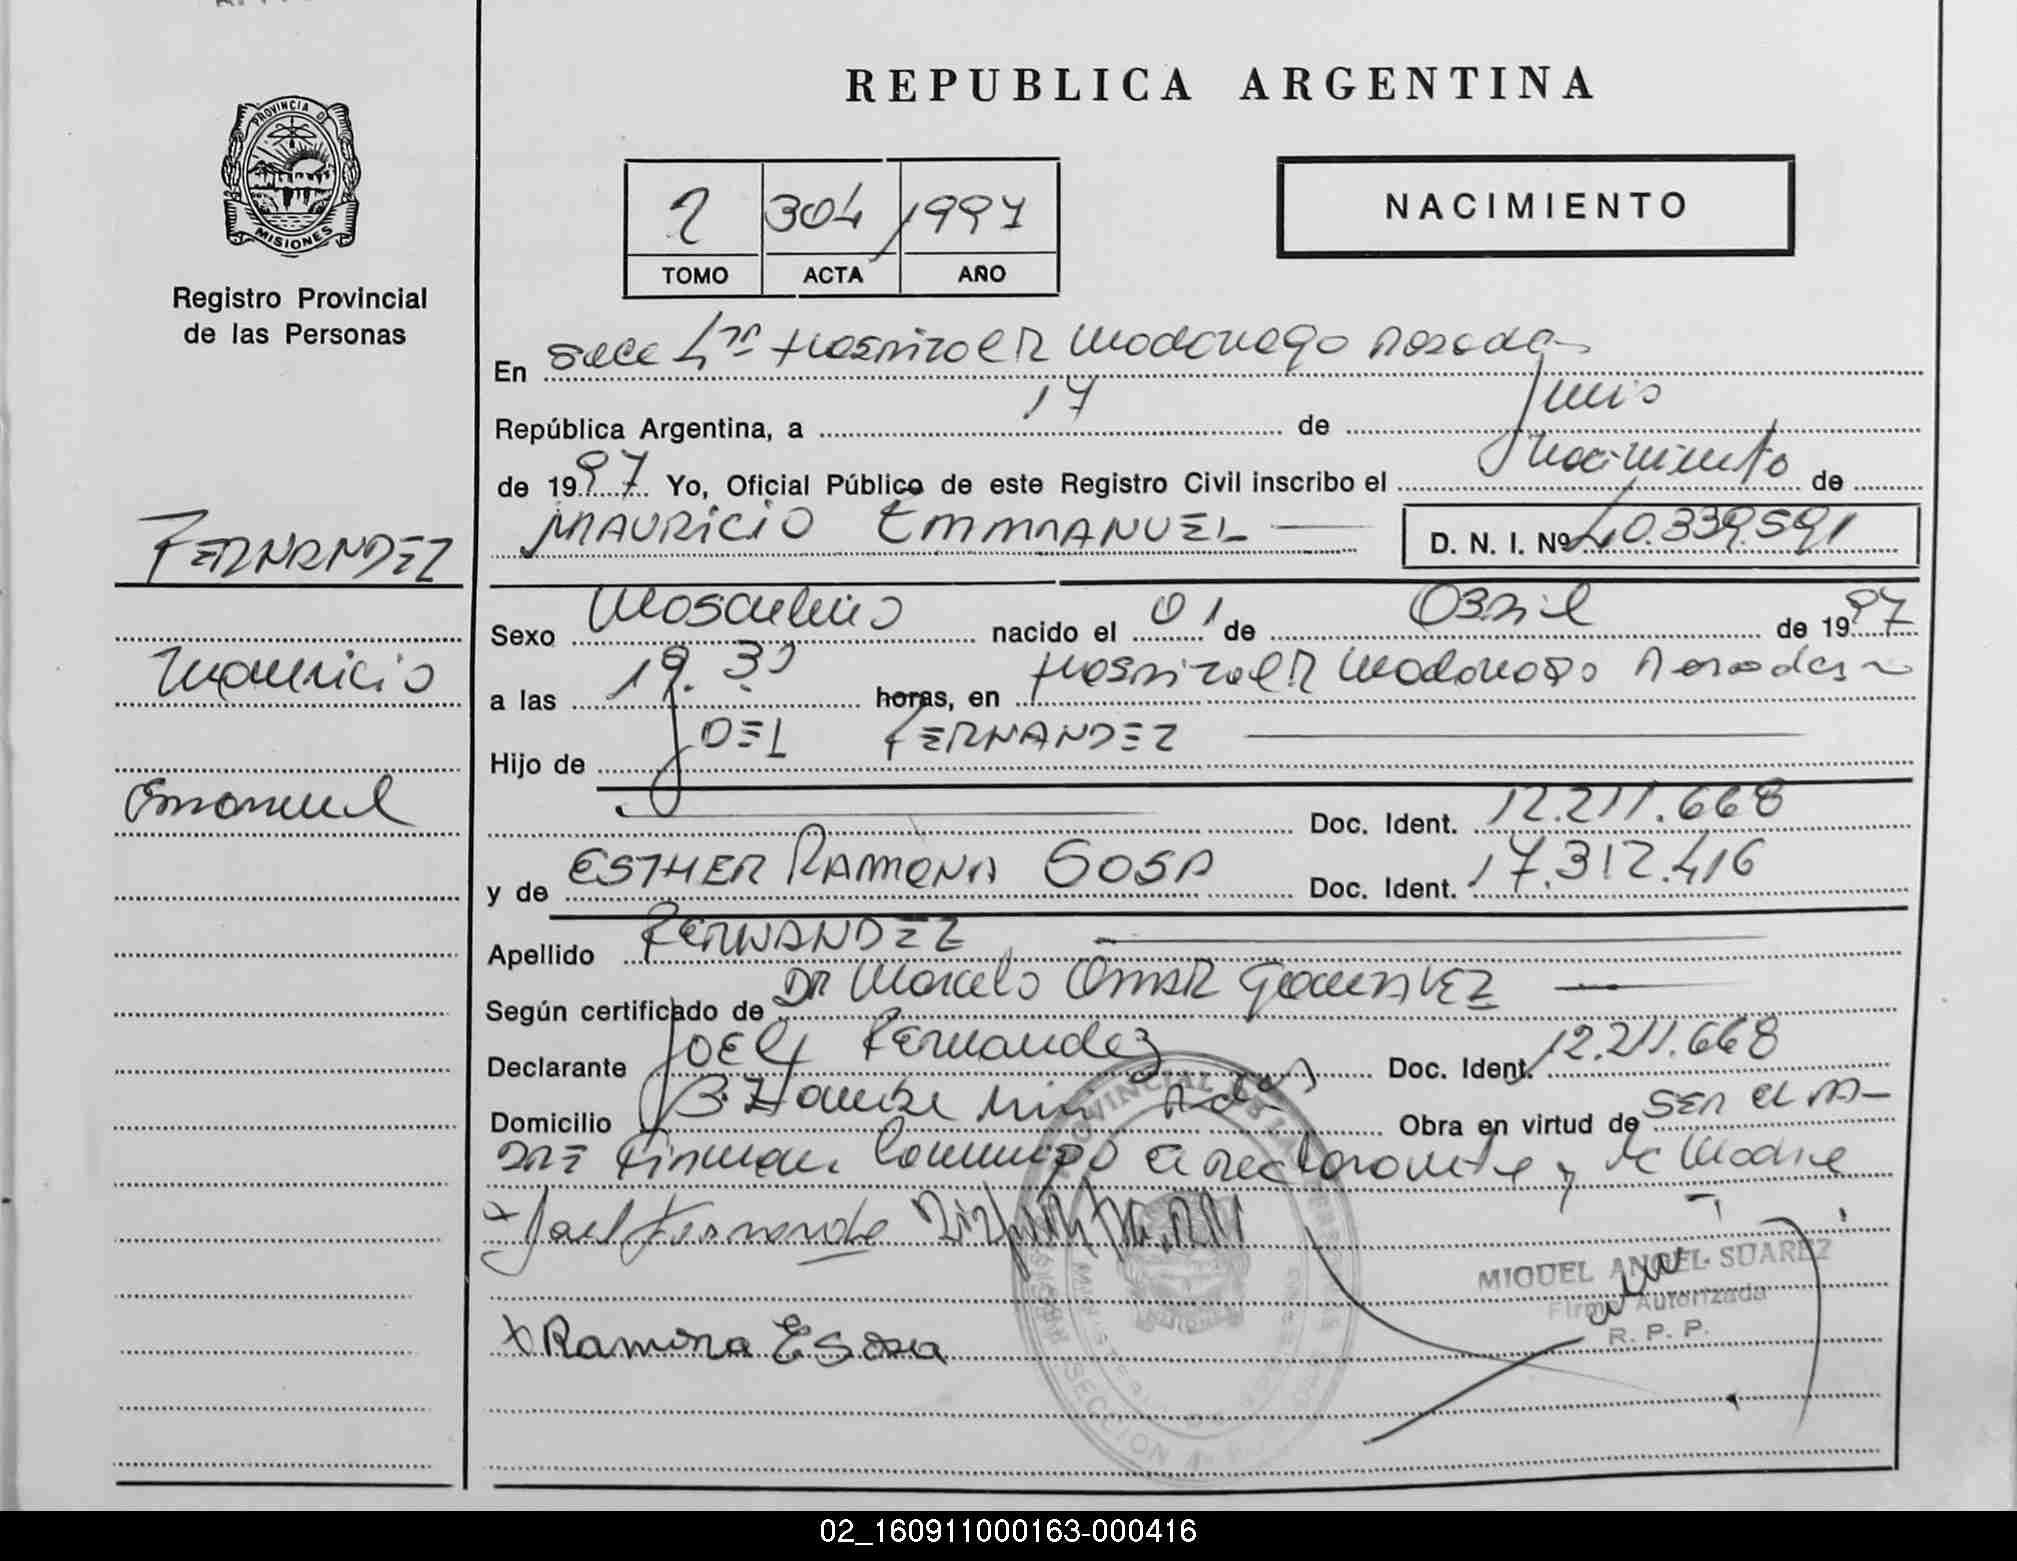 REPUBLICA ARGENTINA
PROVINCIA DE
MISIONES
Registro Provincial
de las Personas
2 304 1997
TOMO ACTA AÑO
NACIMIENTO
En Secc 4ta Hospital R Madariaga Posadas
República Argentina, a 17 de Junio
de 1997 Yo, Oficial Público de este Registro Civil inscribo el Nacimiento de
MAURICIO EMMANUEL D. N. I. Nº 40.339.591
FERNANDEZ
Mauricio
Emanuel
Sexo Masculino nacido el 01 de Abril de 1997
a las 19.30 horas, en Hospital R Madariaga Posadas
Hijo de JOEL FERNANDEZ
Doc. Ident. 12.211.668
y de ESTHER RAMONA SOSA Doc. Ident. 17.312.416
Apellido FERNANDEZ
Según certificado de DR Marcelo OMAR
Declarante JOEL Fernandez Doc. Ident. 12.211.668
Domicilio Pdas Obra en virtud de SER el PA-
DRE Firman Conmigo el declarante y la Madre
x Joel Fernande
MIGUEL ANGEL SUAREZ
Firma Autorizada
R. P. P.
x Ramona E Sosa
PROVINCIAL DE LAS PERSONAS
SECCION 4ª
02_160911000163-000416